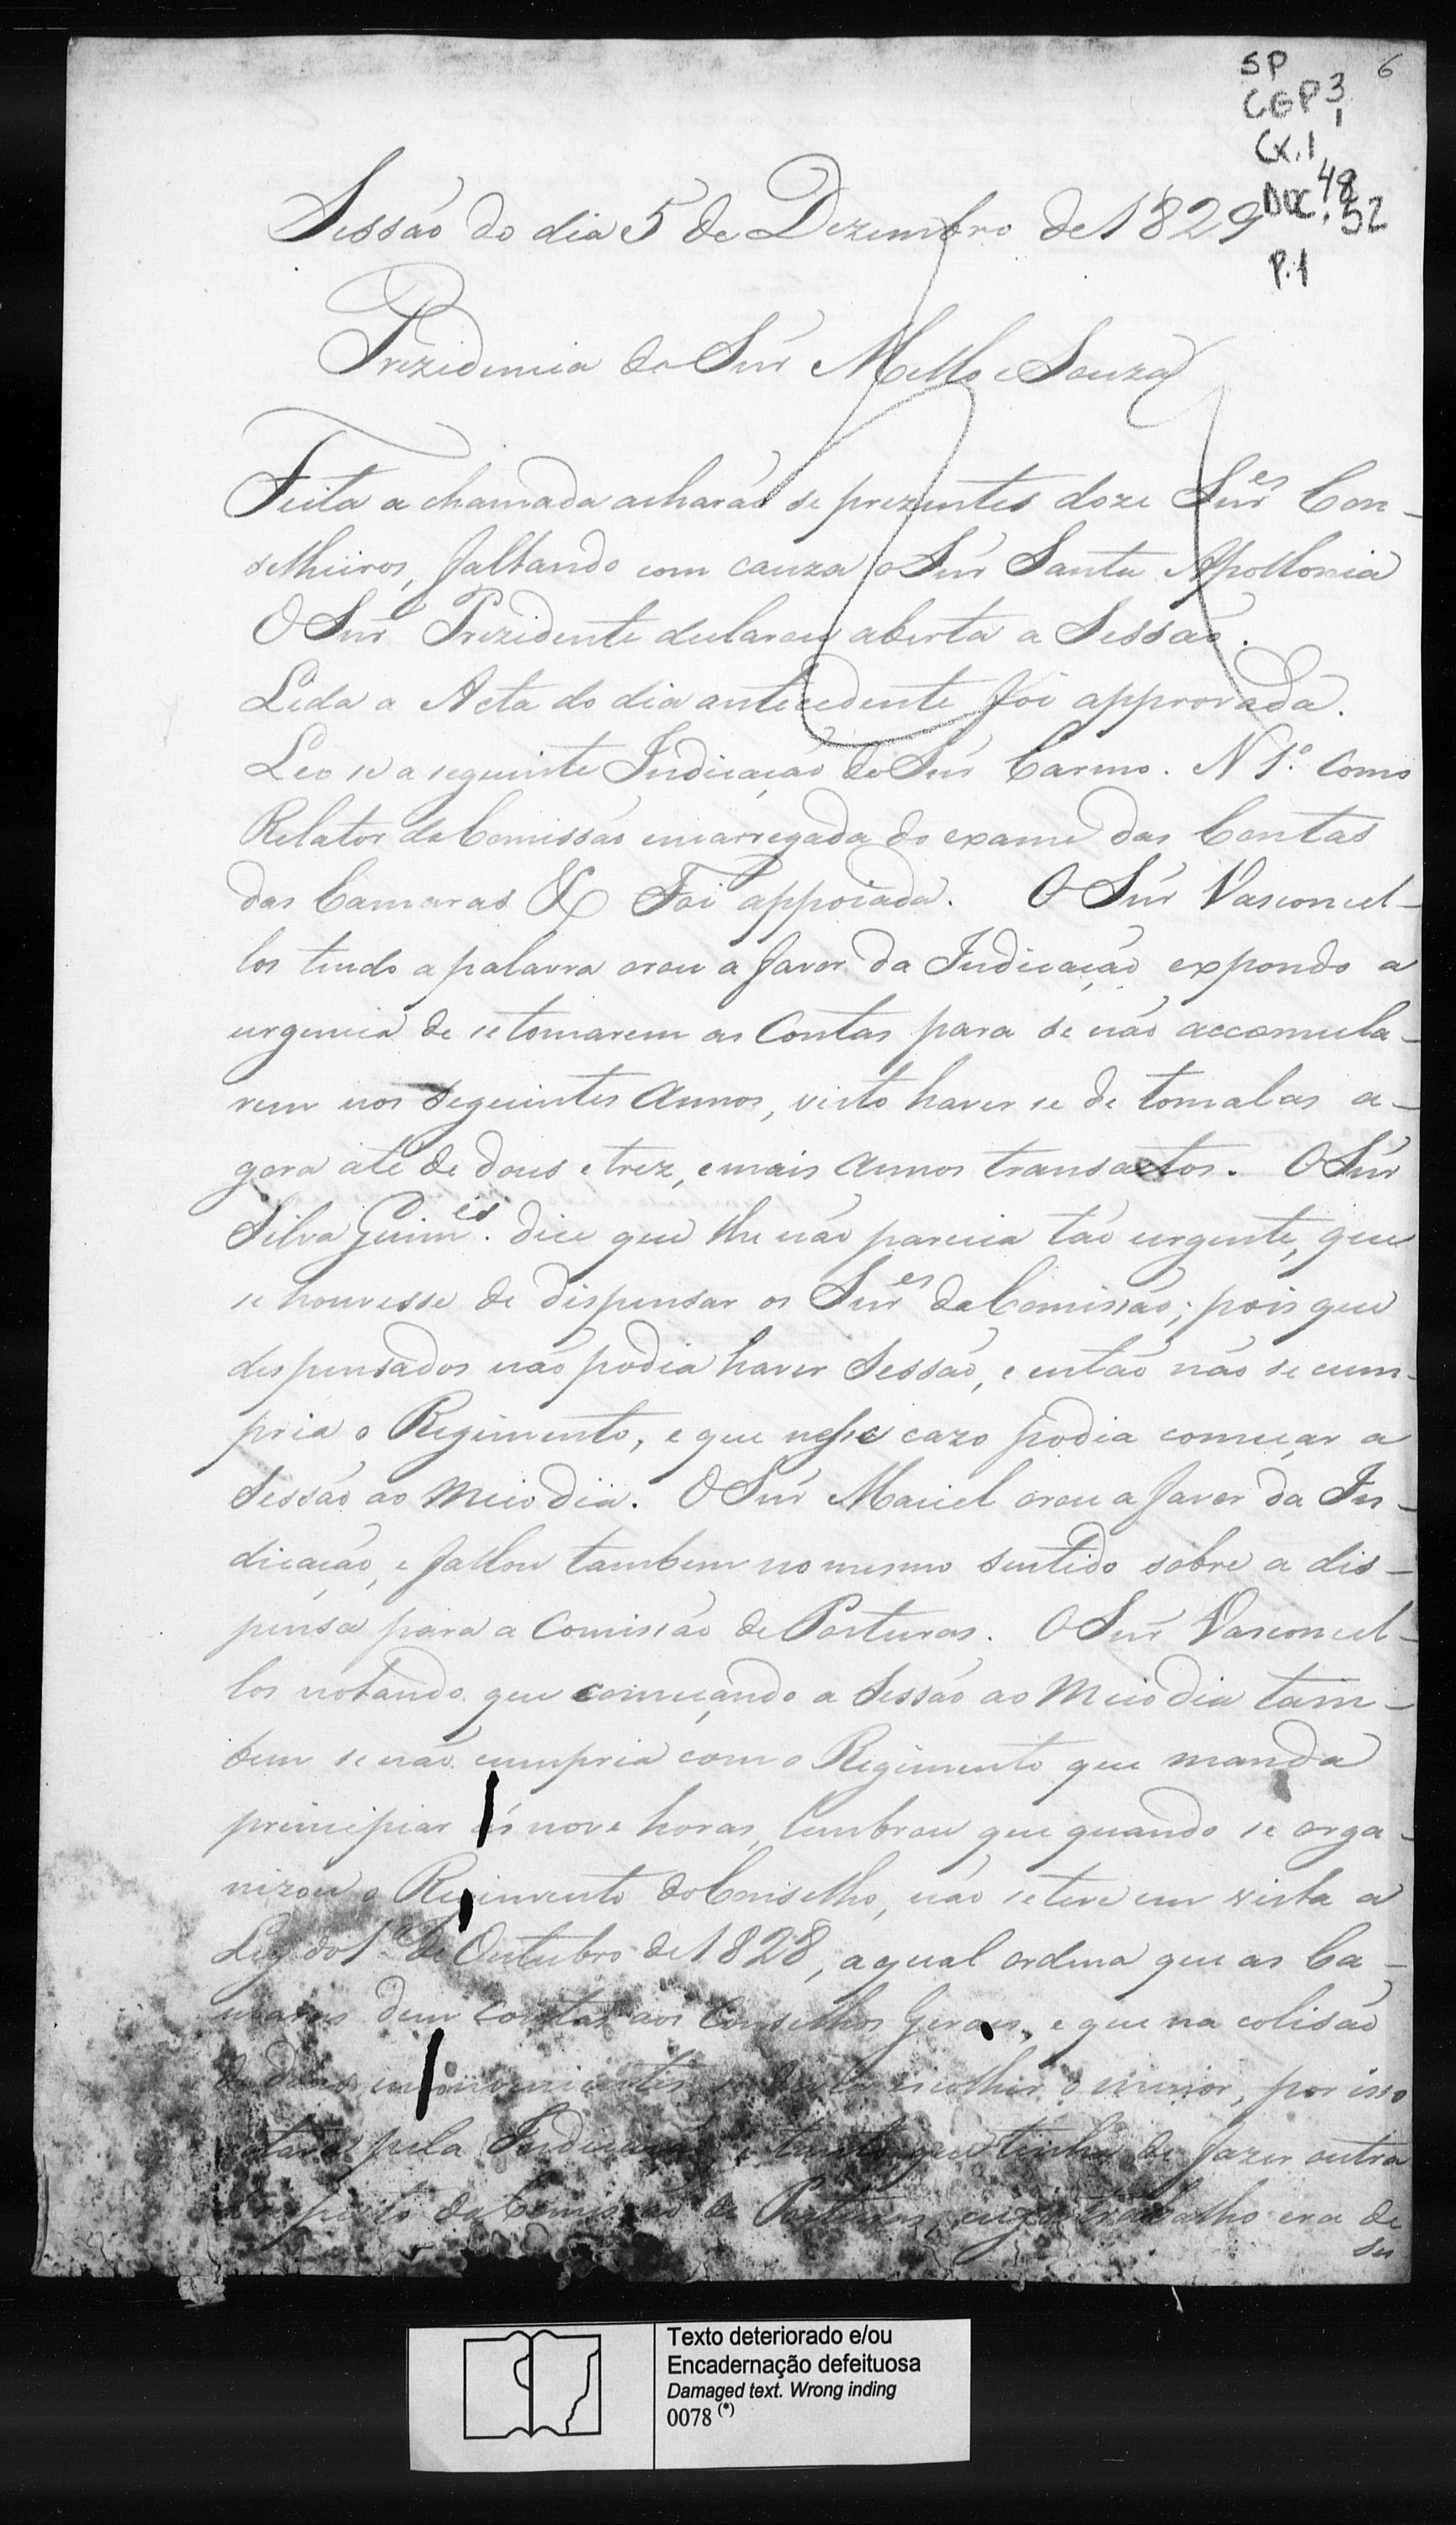 SP 6
CGP 3,1
Cx. 1
Doc. 48, 52
P. 1
Sessão do dia 5 de Dezembro de 1829
Prezidencia do Snr Mello e Souza
Feita a chamada acharão se prezentes doze Snr.es Con-
selheiros, faltando com cauza o Snr Santa Apollonia
O Snr Prezidente declarou aberta a Sessão.
Lida a Acta do dia antecedente foi approvada.
Leo se a seguinte Indicação do Snr Carmo. N 1.º Como
Relator da Comissão encarregada do exame das Contas
das Camaras & Foi appoiada. O Snr Vasconcel-
los tendo a palavra orou a favor da Indicação expondo a
urgencia de se tomarem as Contas para se não accomula-
rem nos seguintes Annos, visto haver se de tomalas a-
gora até de dous e trez, e mais Annos transactos. O Snr
Silva Guim.es dice que lhe não parecia tão urgente, que
se houvesse de dispensar os Snr.es da Comissão; pois que
despensados não podia haver Sessão, e então não se cum-
pria o Regimento, e que nesse cazo podia começar a
Sessão ao Meio dia. O Snr Maciel orou a favor da In-
dicação, e fallou tambem no mesmo sentido sobre a dis-
pensa para a Comissão de Posturas. O Snr Vasconcel-
los notando que começando a Sessão ao Meio dia tam-
bem se não cumpria com o Regimento que manda
principiar ás nove horas, lembrou que quando se orga-
nizou o Regimento do Conselho, não se teve em vista a
Ley do 1.º de Outubro de 1828, a qual ordena que as Ca-
maras dem contas aos Conselhos Geraes, e que na colisão
de dous inconvenientes se devia escolher o menor, por isso
votava pela Indicação e tanto que tinha de fazer outra
a respeito da Comissão de Posturas, cujo trabalho era de
su
Texto deteriorado e/ou
Encadernação defeituosa
Damaged text. Wrong inding
0078 (*)